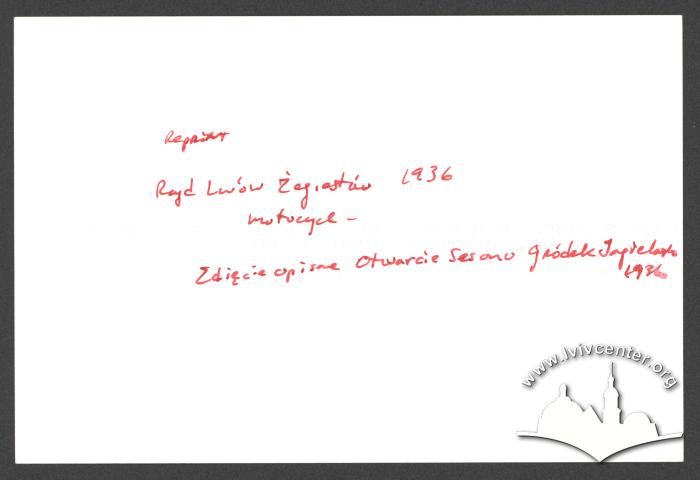 Reprint
Rajd Lwów Żegiestów 1936
motocykl –
Zdjęcie opisane Otwarcie Sesonu Gródek Jagielloński
1936
www.lvivcenter.org